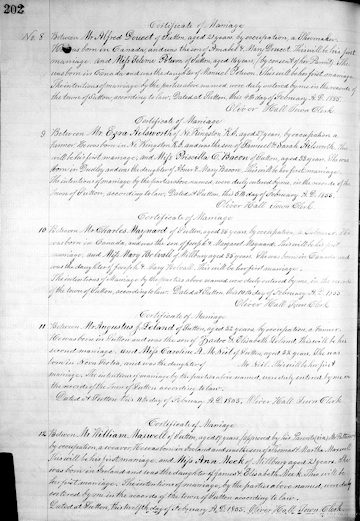 202
Certificate of Marriage
No. 8 Between Mr Alfred Doucet of Sutton, aged 21 years by occupation, a Shoemaker
He was born in Canada, and was the son of & Mary Doucet. This will be his first
marriage, and Miss of Sutton, aged 16 years, (by consent of her Parents). She
was born in Canada and was the daughter of This will be her first marriage.
The intentions of marriage by the parties above named, were duly entered by me, in the records of
the town of Sutton, according to law. Dated at Sutton this day of February, A.D. 1855.
Oliver Hall Town Clerk
Certificate of Marriage
9 Between Mr Ezra of N. Kingston R.I. aged 27 years by occupation a
farmer. He was born in N. Kingston R.I. and was the son of Samuel & Sarah This
will be his first marriage, and Miss Priscilla C. Bacon of Sutton, aged years. She was
born in Dudley and was the daughter of & Mary Bacon. This will be her first marriage.
The intentions of marriage by the parties above named, were duly entered by me, in the records of the
town of Sutton, according to law, Dated at Sutton, this day of February, A.D. 1855.
Oliver Hall Town Clerk.
Certificate of Marriage
10 Between Mr Charles Maynard of Sutton, aged years by occupation a He
was born in Canada, and was the son of Joseph & Margaret Maynard. This will be his first
marriage, and Miss Mary of Millbury, aged 25 years. She was born in Canada and
was the daughter of Joseph & Mary This will be her first marriage.
The intentions of marriage by the parties above named, were duly entered by me, in the records
of the town of Sutton, according to law. Dated at Sutton this day of February, A.D. 1855
Oliver Hall Town Clerk
Certificate of Marriage
11 Between Mr Augustus F. Leland of Sutton, aged 32 years, by occupation, a farmer.
He was born in Sutton and was the son of & Elizabeth Leland This will be his
second marriage, and Miss Caroline A. of Sutton, aged years. She was
born in Nova Scotia, and was the daughter of This will be her first
marriage. The intentions of marriage by the parties above named, were duly entered by me in
the records of the town of Sutton according to law.
Dated at Sutton this day of February, A.D. 1855, Oliver Hall Town Clerk
Certificate of Marriage
12 Between Mr William Maxwell of Sutton, aged 19 years, by his
by occupation, a weaver. He was born in Ireland and was the son of & Martha Maxwell
This will be his first marriage, and Miss Ann Meek of Millbury, aged 21 years. She
was born in Ireland and was the daughter of James & Elizabeth Meek. This will be
her first marriage. The intentions of marriage, by the parties above named, were duly
entered by me in the records of the town of Sutton according to law.
Dated at Sutton, this day of February, A.D. 1855. Oliver Hall Town Clerk